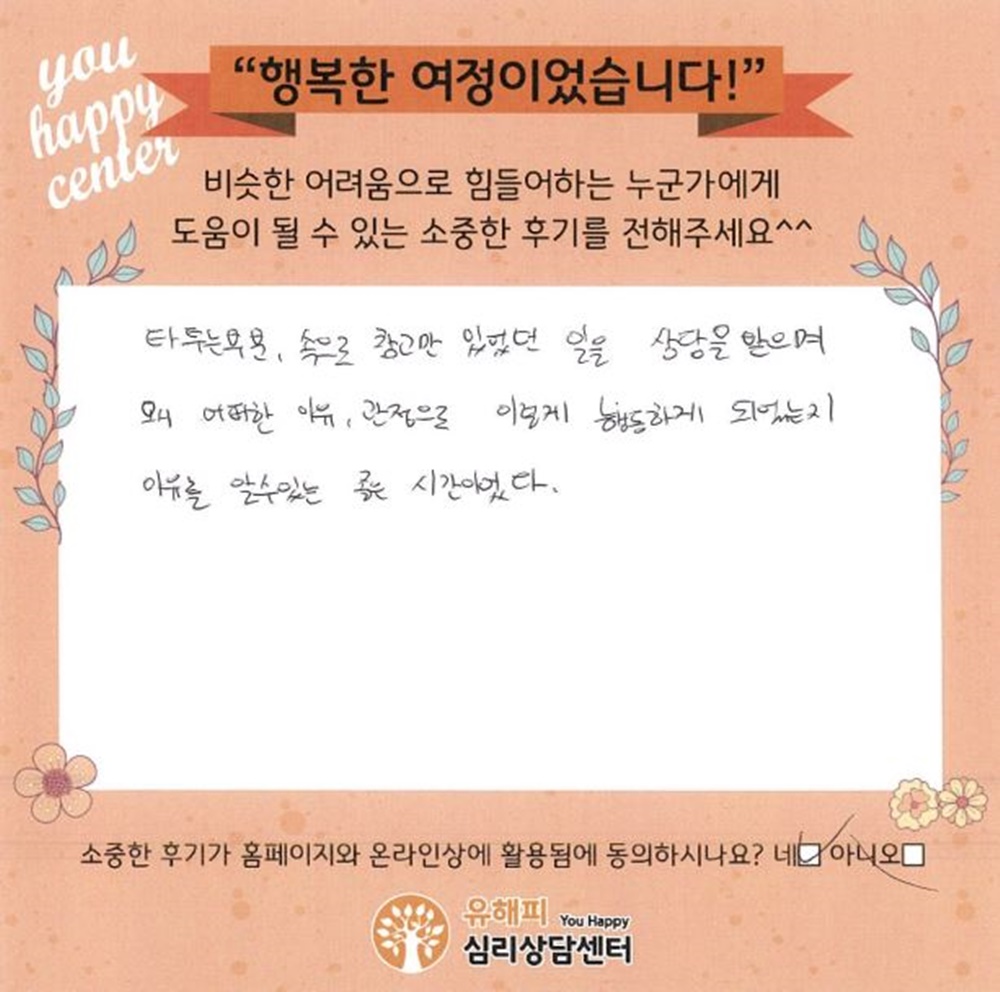 you
happy
center
“행복한 여정이었습니다!”
비슷한 어려움으로 힘들어하는 누군가에게
도움이 될 수 있는 소중한 후기를 전해주세요^^
타투는부분, 속으로 참고만 있었던 일을 상담을 받으며
왜 어떠한 이유, 관점으로 이렇게 행동하게 되었는지
이유를 알수있는 좋은 시간이었다.
소중한 후기가 홈페이지와 온라인상에 활용됨에 동의하시나요? 네☑ 아니오☐
유해피 You Happy
심리상담센터